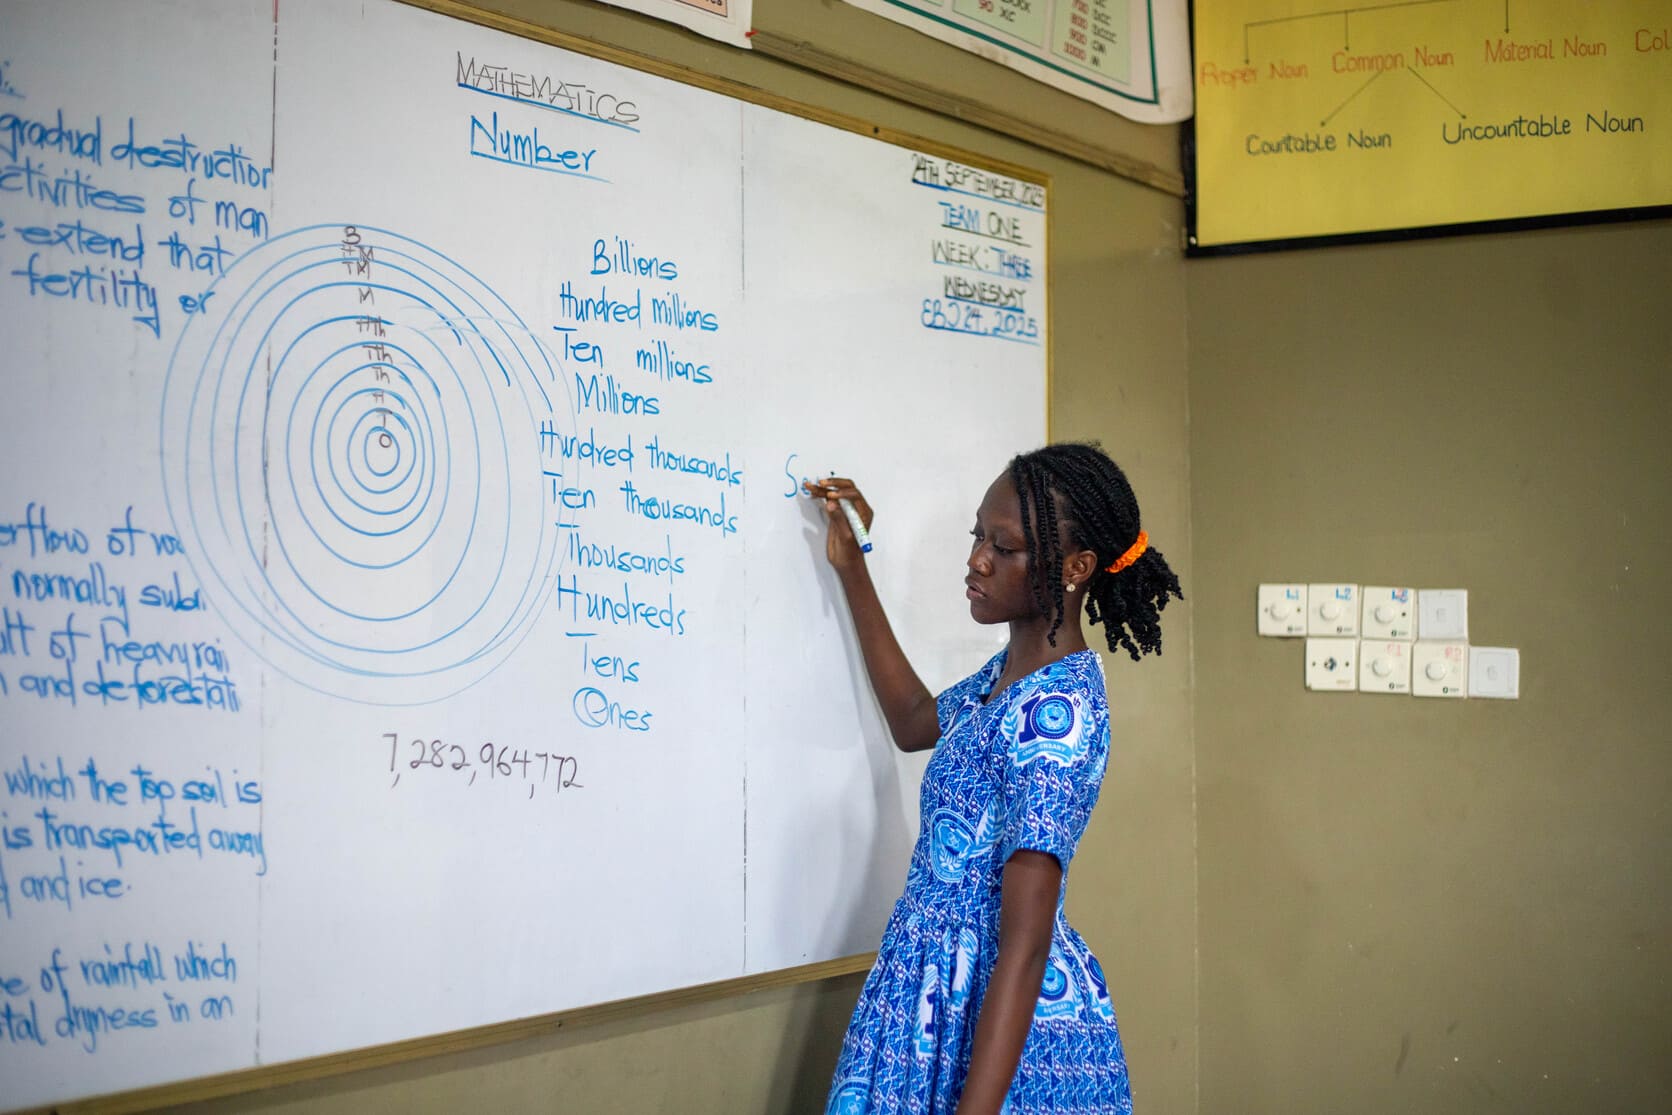 90 XC
900 CM
1000 M
Proper Noun Common Noun Material Noun Col
Countable Noun Uncountable Noun
MATHEMATICS
Number
24TH SEPTEMBER, 2025
TERM ONE
WEEK: THREE
WEDNESDAY
EBJ 24, 2025
gradual destruction
ctivities of man
extend that
fertility or
erflow of
normally
ult of heavy rain
and deforestati
which the top soil is
is transported away
and ice.
e of rainfall which
tal dryness in an
B
HM
TM
M
HTh
TTh
Th
H
T
O
Billions
Hundred millions
Ten millions
Millions
Hundred thousands
Ten thousands
Thousands
Hundreds
Tens
Ones
7,282,964,772
Se
10th
ANNIVERSARY
L1 L2
R1 R2